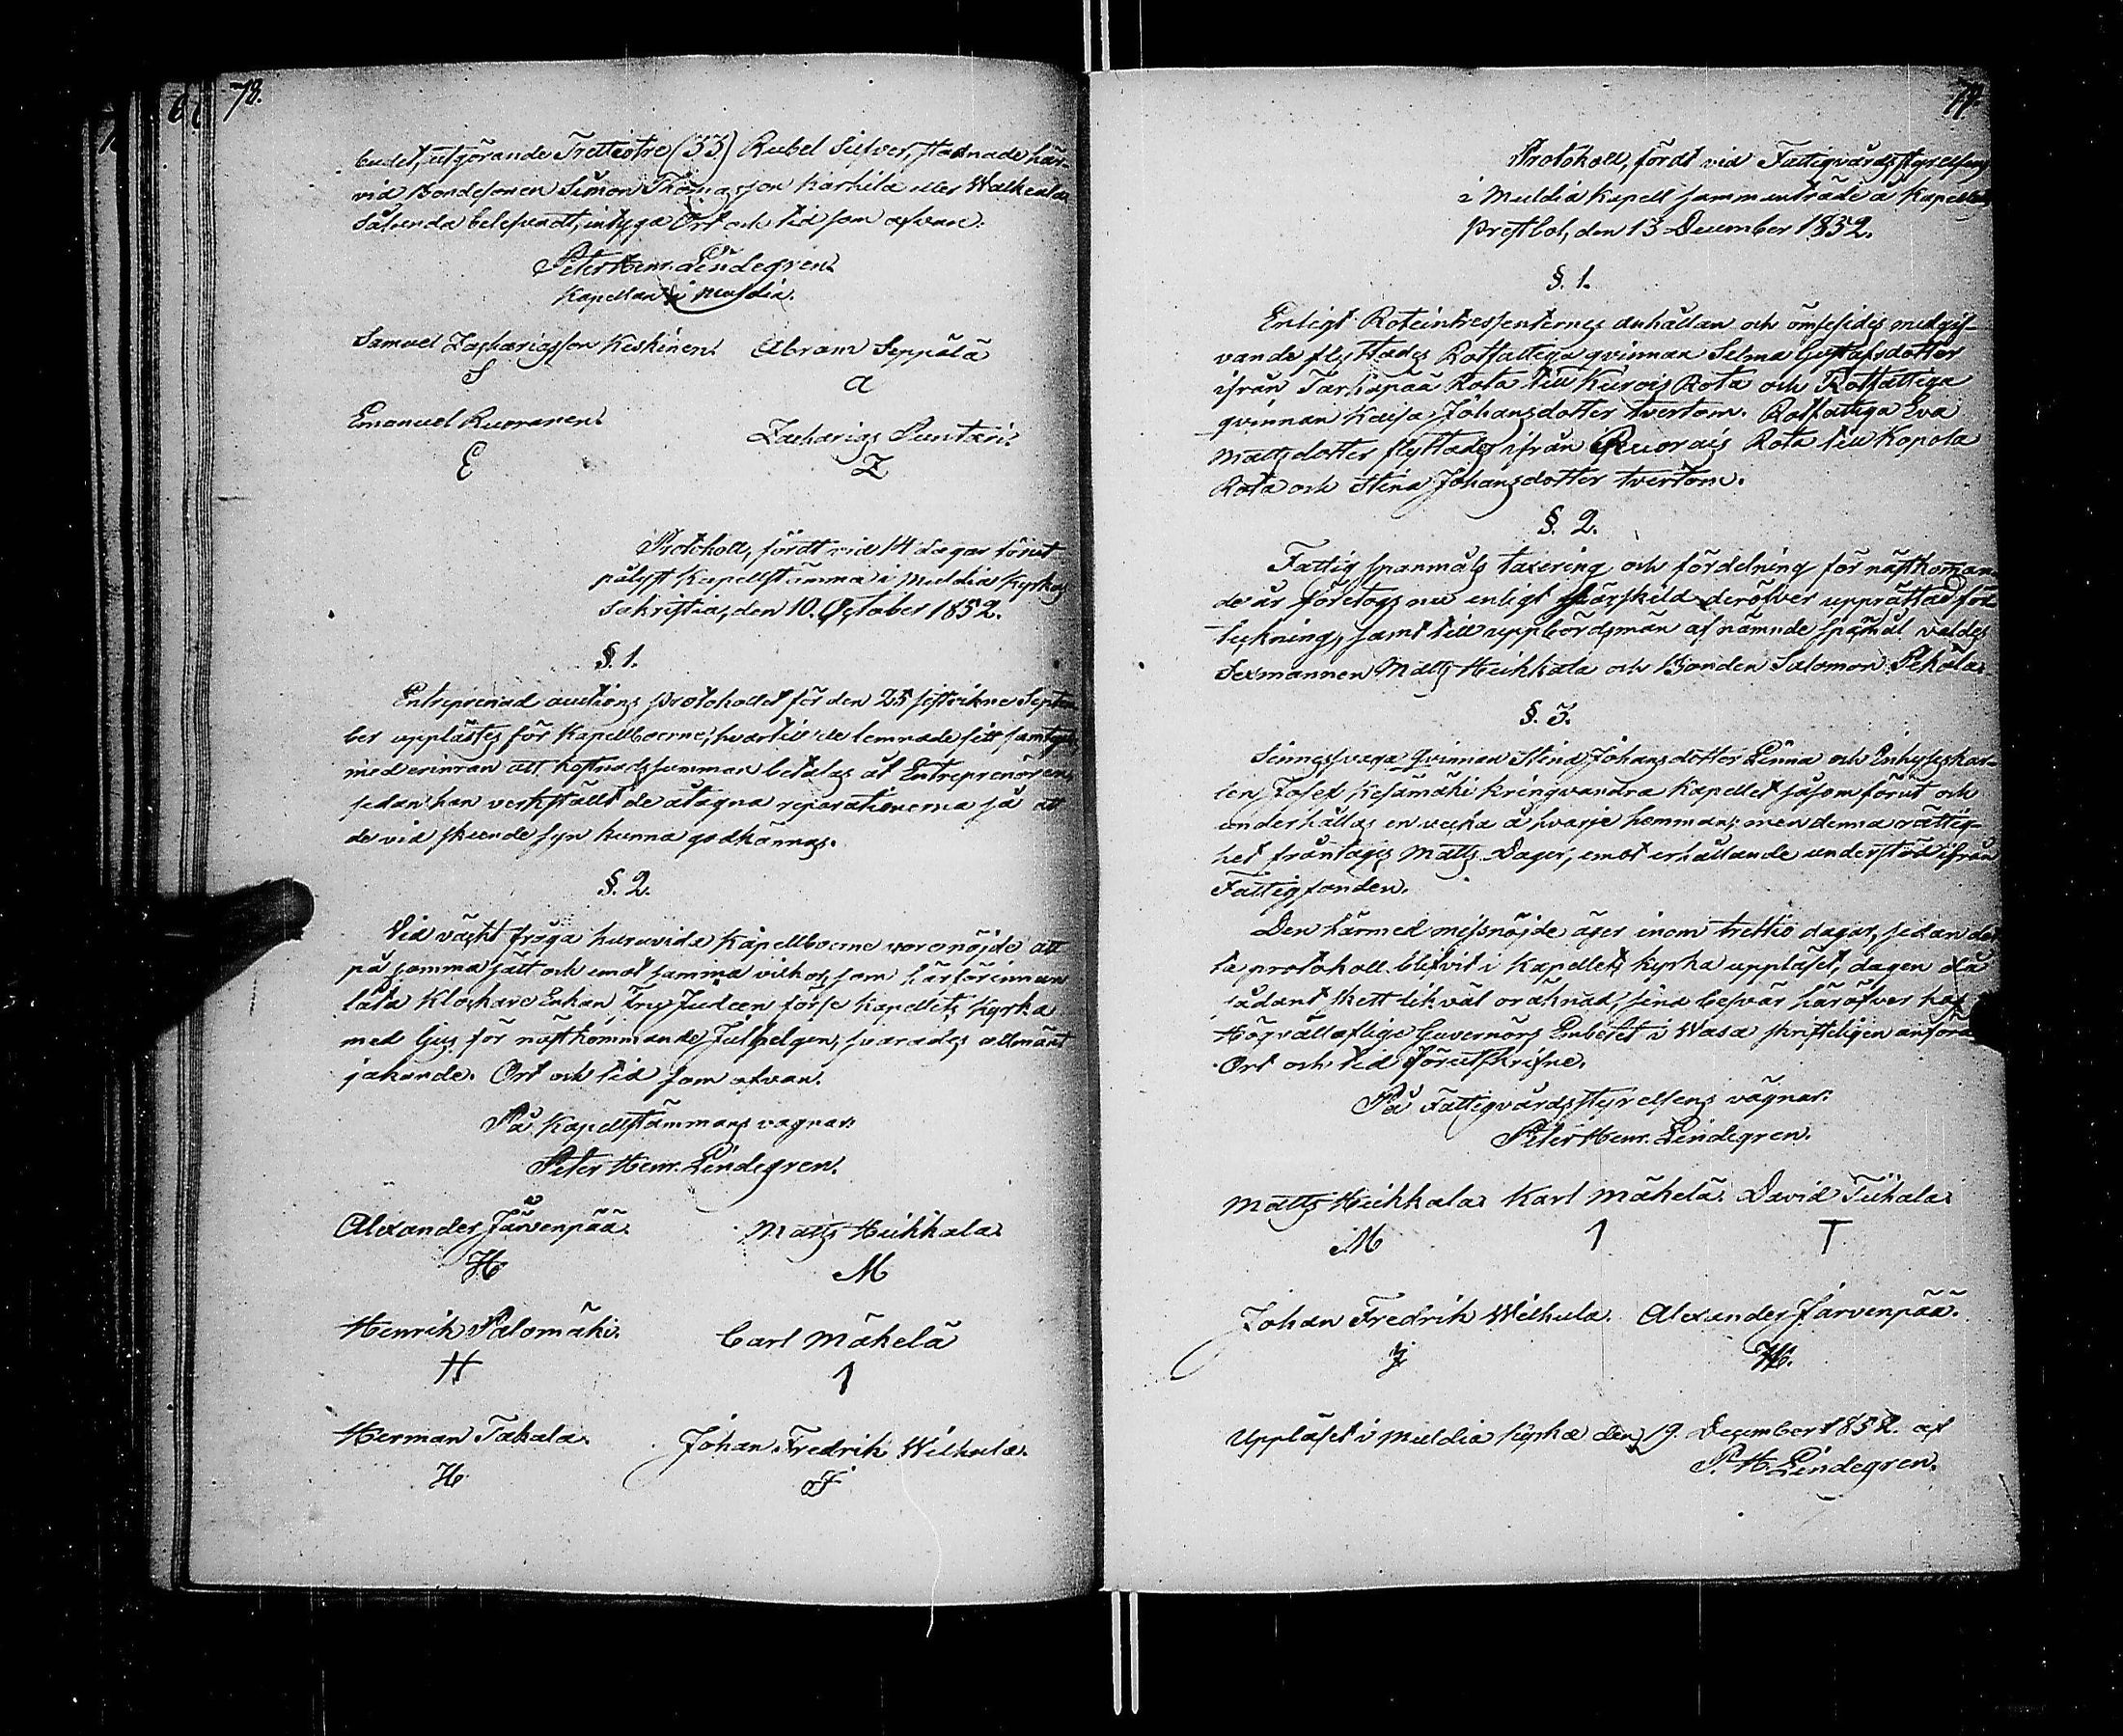 78.
budet, utgörande Trettiotre (33) Rubel Silfver, stadnade här-
vid Bondesonen Simon Thomasson Karhila eller Walkeala
Sålunda belefvadt, intyga Ort och tid som ofvan:
Peter Henr. Lindegren.
Kapellan i Muldia.
Samuel Zachariasson Keskinen. Abram Seppälä
S a
Emanuel Ruoranen. Zacharias Puntari.
E Z
Protokoll, fördt vid 14 dagar förut
pålyst Kapellstämma i Muldia Kyrkas
Sakristia, den 10. October 1852.
§. 1.
Entreprenad auctions protokollet för den 25 sistvikne Septem-
ber upplästes för Kapellboerne, hvartill de lemnade sitt samtycke,
med erinran att kostnadssumman betalas åt Entreprenören,
sedan han verkställt de åtagna reparationerna så att
de vid skeende syn kunna godkännas.
§. 2.
Vid väckt fråga huruvida Kapellboerne vore nöjde att
på samma sätt och emot samma vilkor, som härförinnan
låta Klockare Enkan Fru Judeen förse Kapellets Kyrka
med ljus för nästkommande Julhelgen, svarades allmänt
jakande. Ort och tid som ofvan.
På Kapellstämmans vägnar:
Peter Henr. Lindegren.
Alexander Järvenpää. Matts Heikkala.
H M
Henrik Palomäki. Carl Mäkelä
H 1
Herman Takala. Johan Fredrik Wilkula.
H J
79.
Protokoll, fördt vid Fattigvårdsstyrelsens
i Muldia Kapell sammanträde å Kapellans
Prestbol, den 13 December 1852.
§. 1.
Enligt Roteintressenternes anhållan och ömsesides medgif-
vande flyttades Rotfattiga qvinnan Selma Gustafsdotter
ifrån Tarhapää Rota till Kurois Rota och Rotfattiga
qvinnan Kaisa Johansdotter tvertom. Rotfattiga Eva
Mattsdotter flyttades ifrån Ruorais Rota till Kopola
Rota och Stina Johansdotter tvertom.
§. 2.
Fattig spanmåls taxering och fördelning för nästkomman-
de år företogs nu enligt särskild deröfver upprättad för-
teckning, samt till uppbördsmän af nämnde spanmål valdes
Sexmannen Matts Heikkala och Bonden Salomon Pekola.
§. 3.
Sinnessvaga Qvinnan Stina Johansdotter Linna och Inhyseskar-
len Josef Kesämäki kringvandra Kapellet såsom förut och
underhållas en vecka å hvarje hemman; men denna rättig-
het fråntages Matts Dager, emot erhållande understöd ifrån
Fattigfonden.
Den härmed missnöjde äger inom trettio dagar, sedan det-
ta protokoll blifvit i Kapellets kyrka uppläset, dagen då
sådant skett likväl oräknad, sina besvär häröfver hos
Högvällofliga Guvernörs Embetet i Wasa skrifteligen anföra
Ort och tid förutskrifne.
På Fattigvårdsstyrelsens vägnar:
Peter Henr. Lindegren.
Matts Heikkala. Karl Mäkelä. David Tiihala.
M 1 T
Johan Fredrik Wilkula. Alexander Järvenpää.
J H.
Uppläset i Muldia kyrka den 19. December 1852. af
P. H. Lindegren.